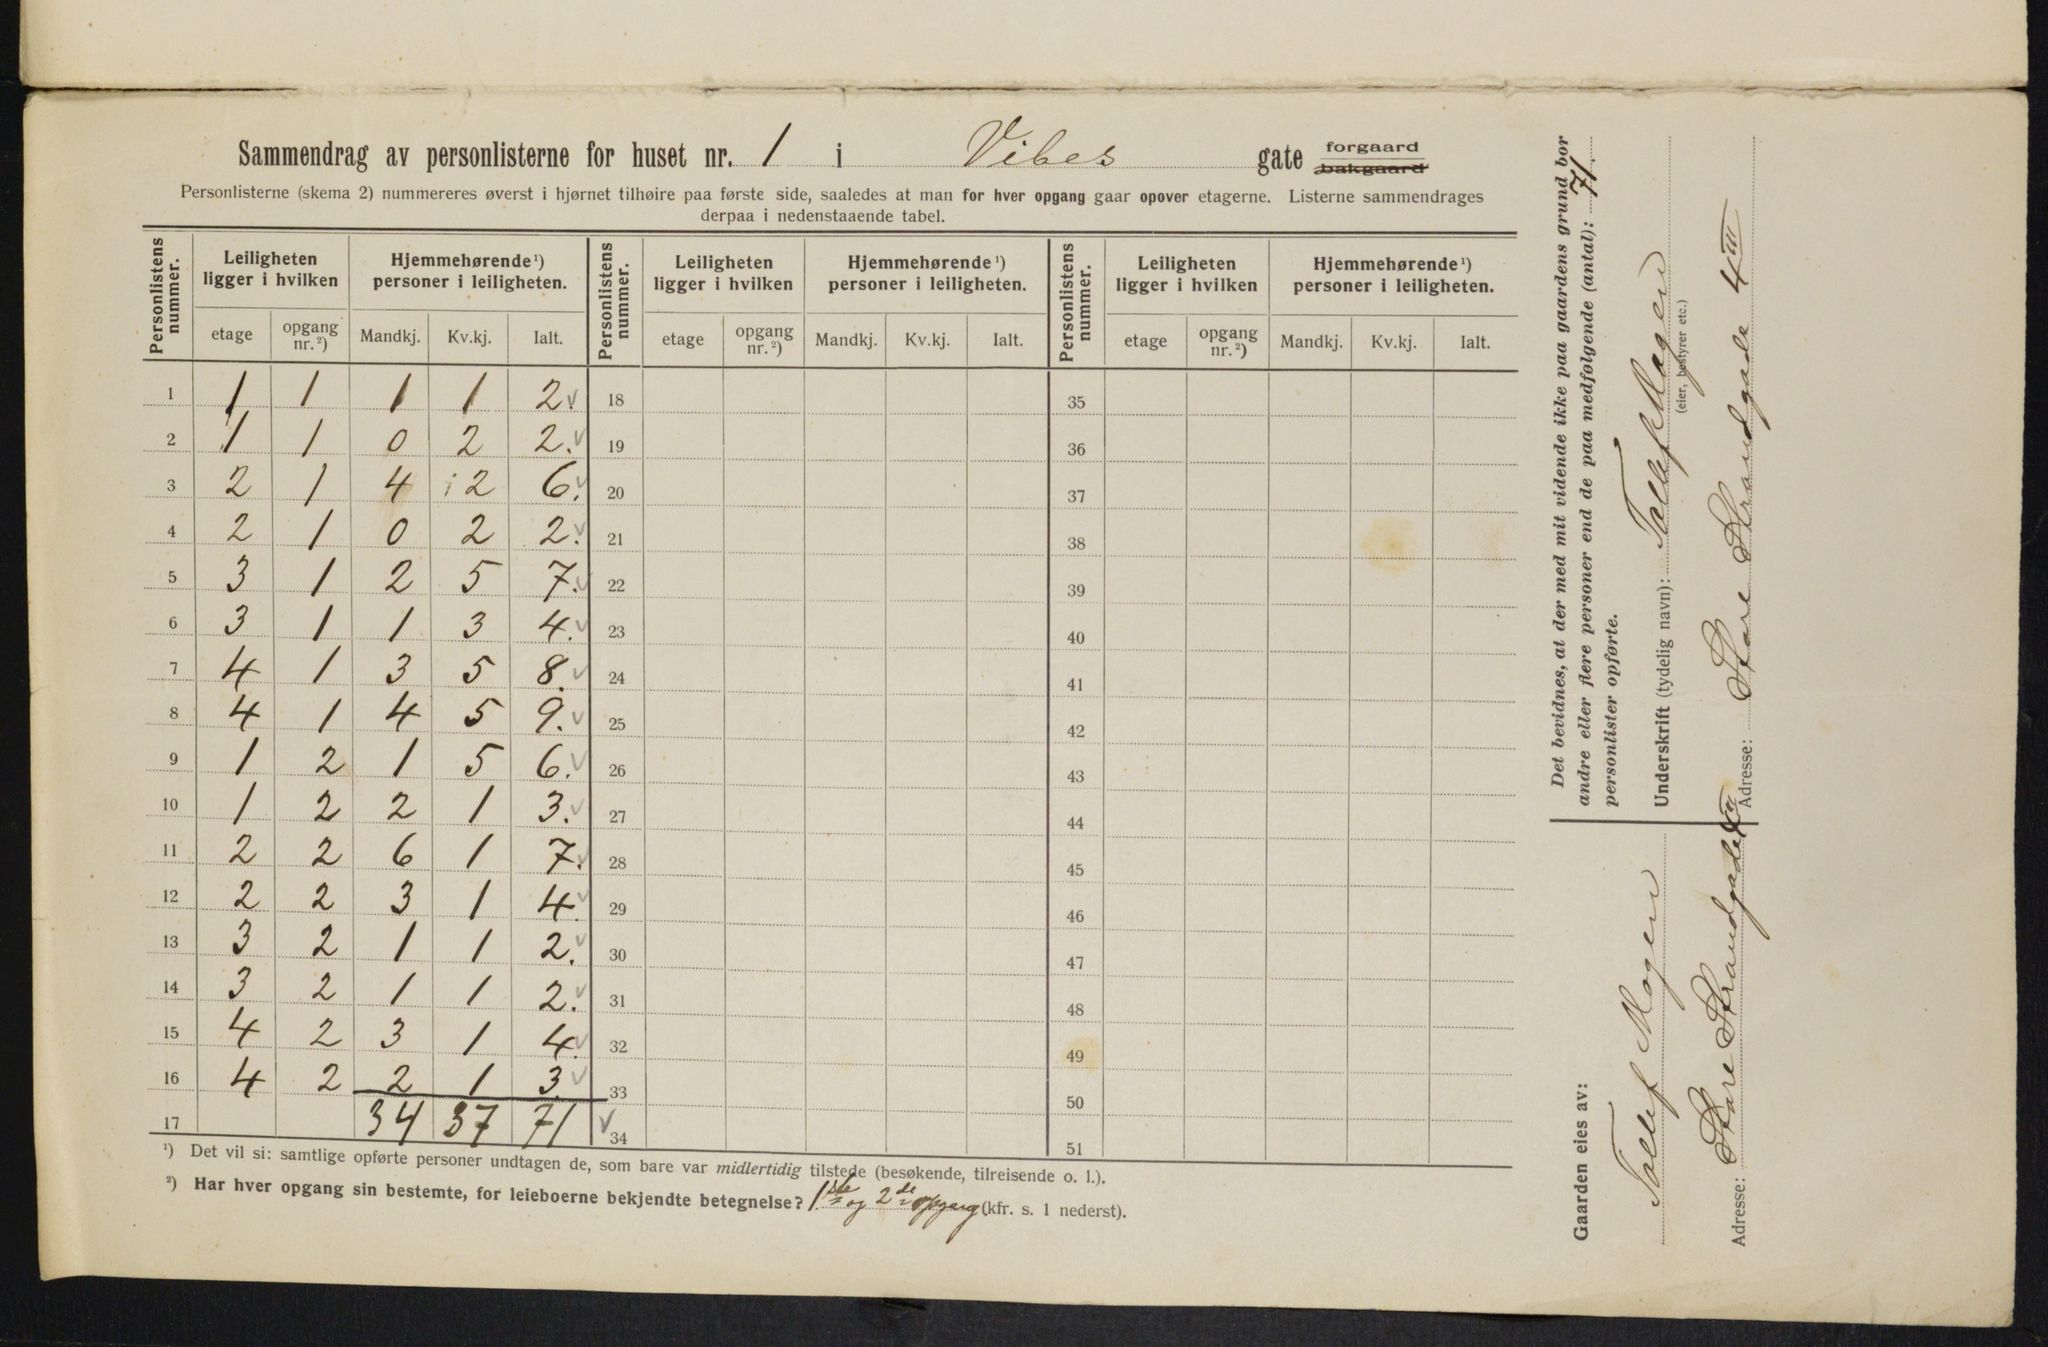 Sammendrag av personlisterne for huset nr. 1 i Vibes gate forgaard bakgaard
Personlisterne (skema 2) nummereres øverst i hjørnet tilhøire paa første side, saaledes at man for hver opgang gaar opover etagerne. Listerne sammendrages
derpaa i nedenstaaende tabel.
Personlistens nummer. Leiligheten ligger i hvilken Hjemmehørende¹) personer i leiligheten. Personlistens nummer. Leiligheten ligger i hvilken Hjemmehørende¹) personer i leiligheten. Personlistens nummer. Leiligheten ligger i hvilken Hjemmehørende¹) personer i leiligheten.
etage opgang nr.²) Mandkj. Kv.kj. Ialt. etage opgang nr.²) Mandkj. Kv.kj. Ialt. etage opgang nr.²) Mandkj. Kv.kj. Ialt.
1 1 1 1 1 2. 18 35
2 1 1 0 2 2. 19 36
3 2 1 4 2 6. 20 37
4 2 1 0 2 2. 21 38
5 3 1 2 5 7. 22 39
6 3 1 1 3 4. 23 40
7 4 1 3 5 8. 24 41
8 4 1 4 5 9. 25 42
9 1 2 1 5 6. 26 43
10 1 2 2 1 3. 27 44
11 2 2 6 1 7. 28 45
12 2 2 3 1 4. 29 46
13 3 2 1 1 2. 30 47
14 3 2 1 1 2. 31 48
15 4 2 3 1 4. 32 49
16 4 2 2 1 3. 33 50
17 34 37 71 34 51
¹) Det vil si: samtlige opførte personer undtagen de, som bare var midlertidig tilstede (besøkende, tilreisende o. l.).
²) Har hver opgang sin bestemte, for leieboerne bekjendte betegnelse? 1ste og 2de opgang (kfr. s. 1 nederst).
Det bevidnes, at der med mit vidende ikke paa gaardens grund bor
andre eller flere personer end de paa medfølgende (antal): 71.
personlister opførte.
Underskrift (tydelig navn): Tollef Mogen
(eier, bestyrer etc.)
Adresse: Store Strandgade 4 III
Gaarden eies av:
Tollef Mogen
Adresse: Store Strandgade